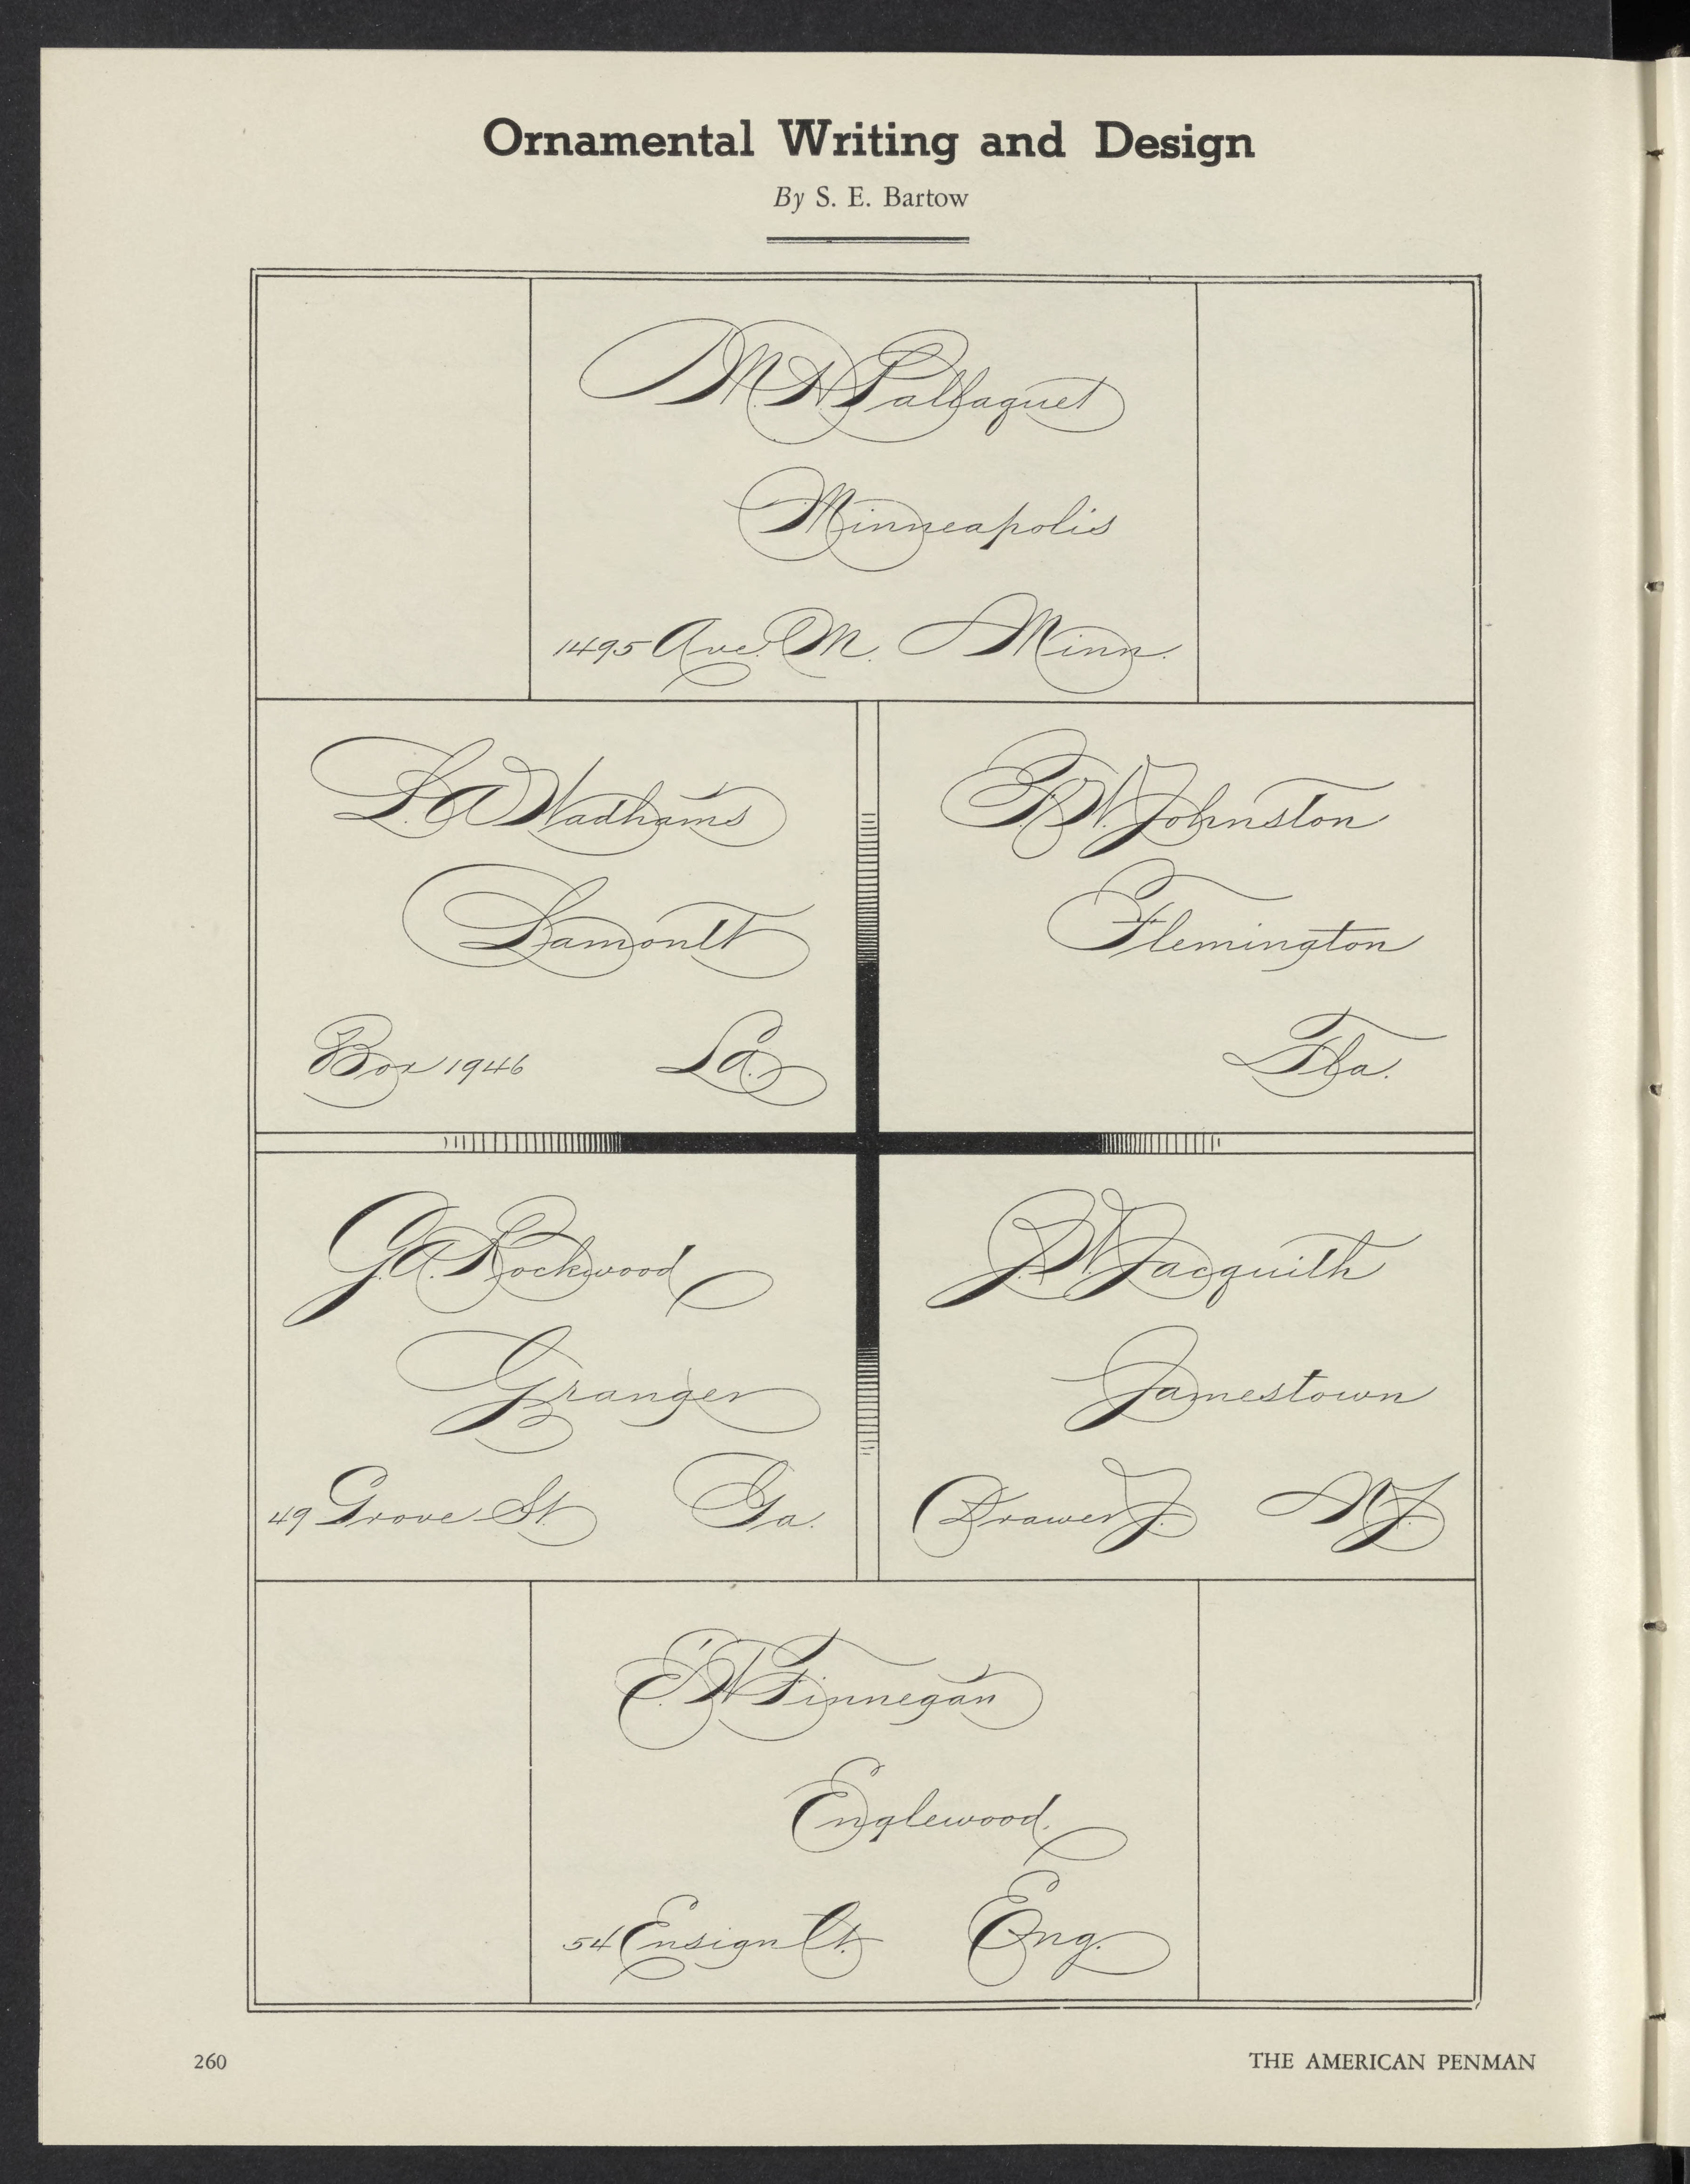 Ornamental Writing and Design
By S. E. Bartow
M. N. Pallaquet
Minneapolis
1495 Ave. M. Minn.
L. A. Wadhams
Lamont
Box 1946 La.
F. W. Johnston
Flemington
Fla.
G. A. Rockwood
Granger
49 Grove St. Ga.
J. W. Jacquith
Jamestown
Drawer J. N. J.
E. W. Finnegan
Englewood.
54 Ensign Ct. Eng.
260
THE AMERICAN PENMAN